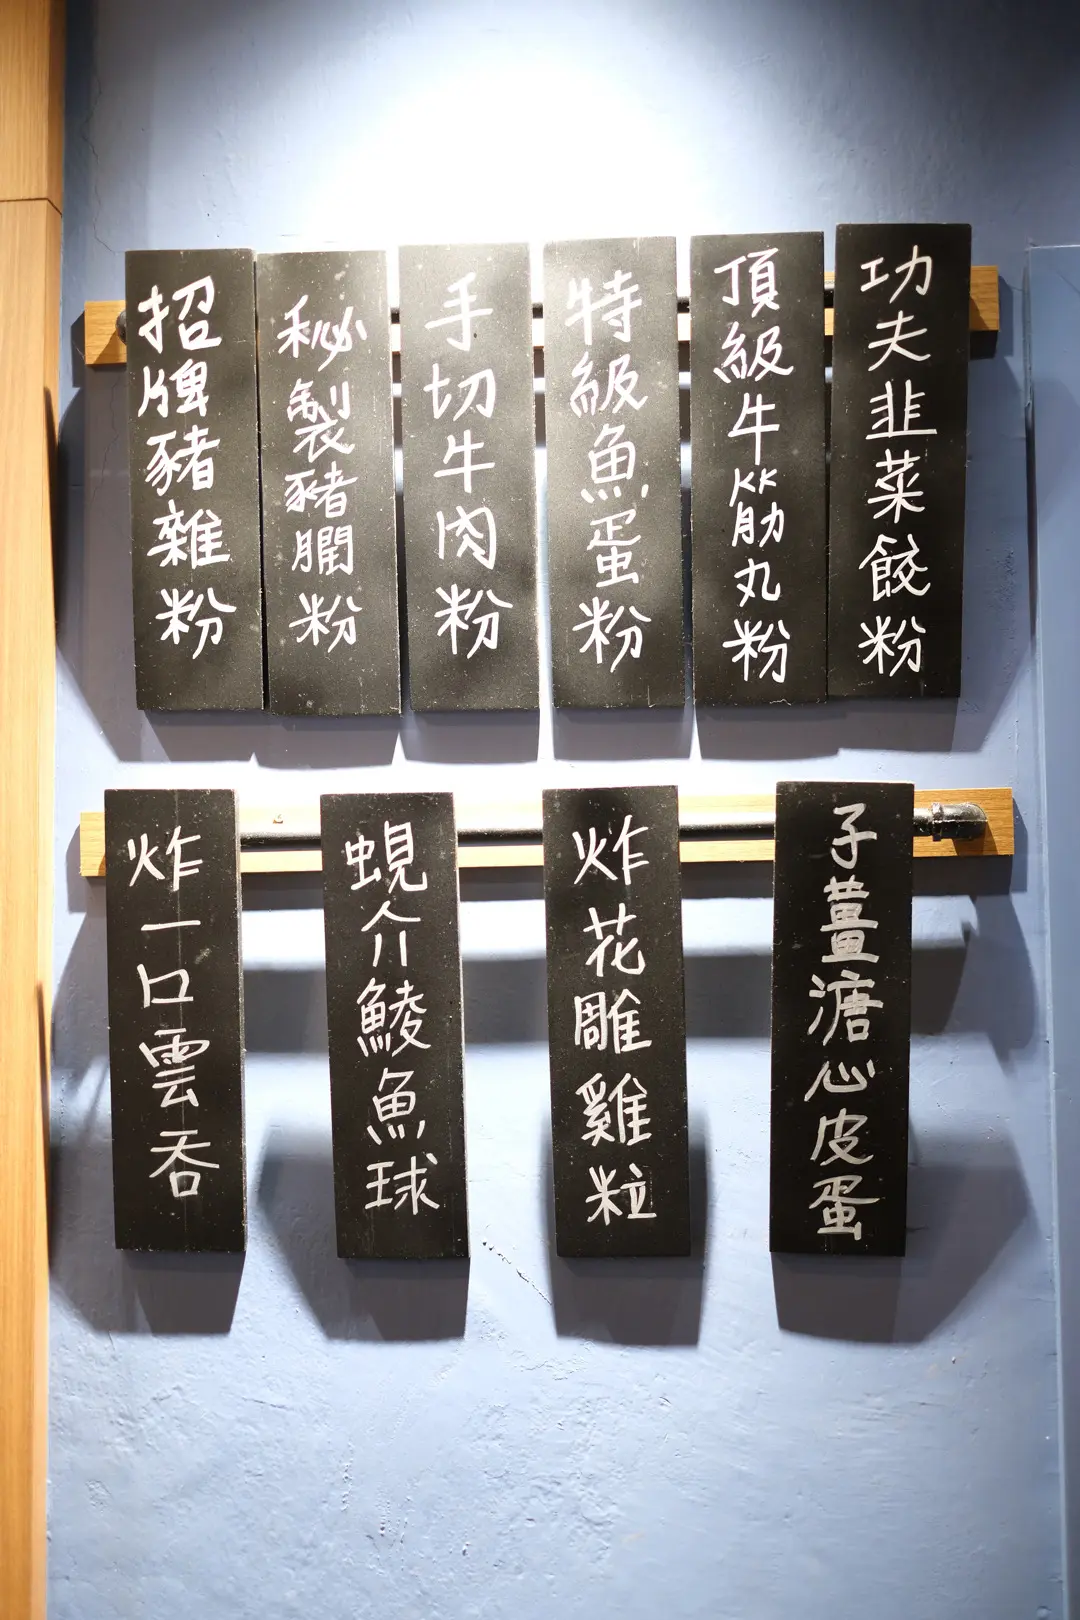 招牌豬雜粉
秘製豬膶粉
手切牛肉粉
特級魚蛋粉
頂級牛筋丸粉
功夫韭菜餃粉
炸一口雲吞
蜆介鯪魚球
炸花雕雞粒
子薑溏心皮蛋